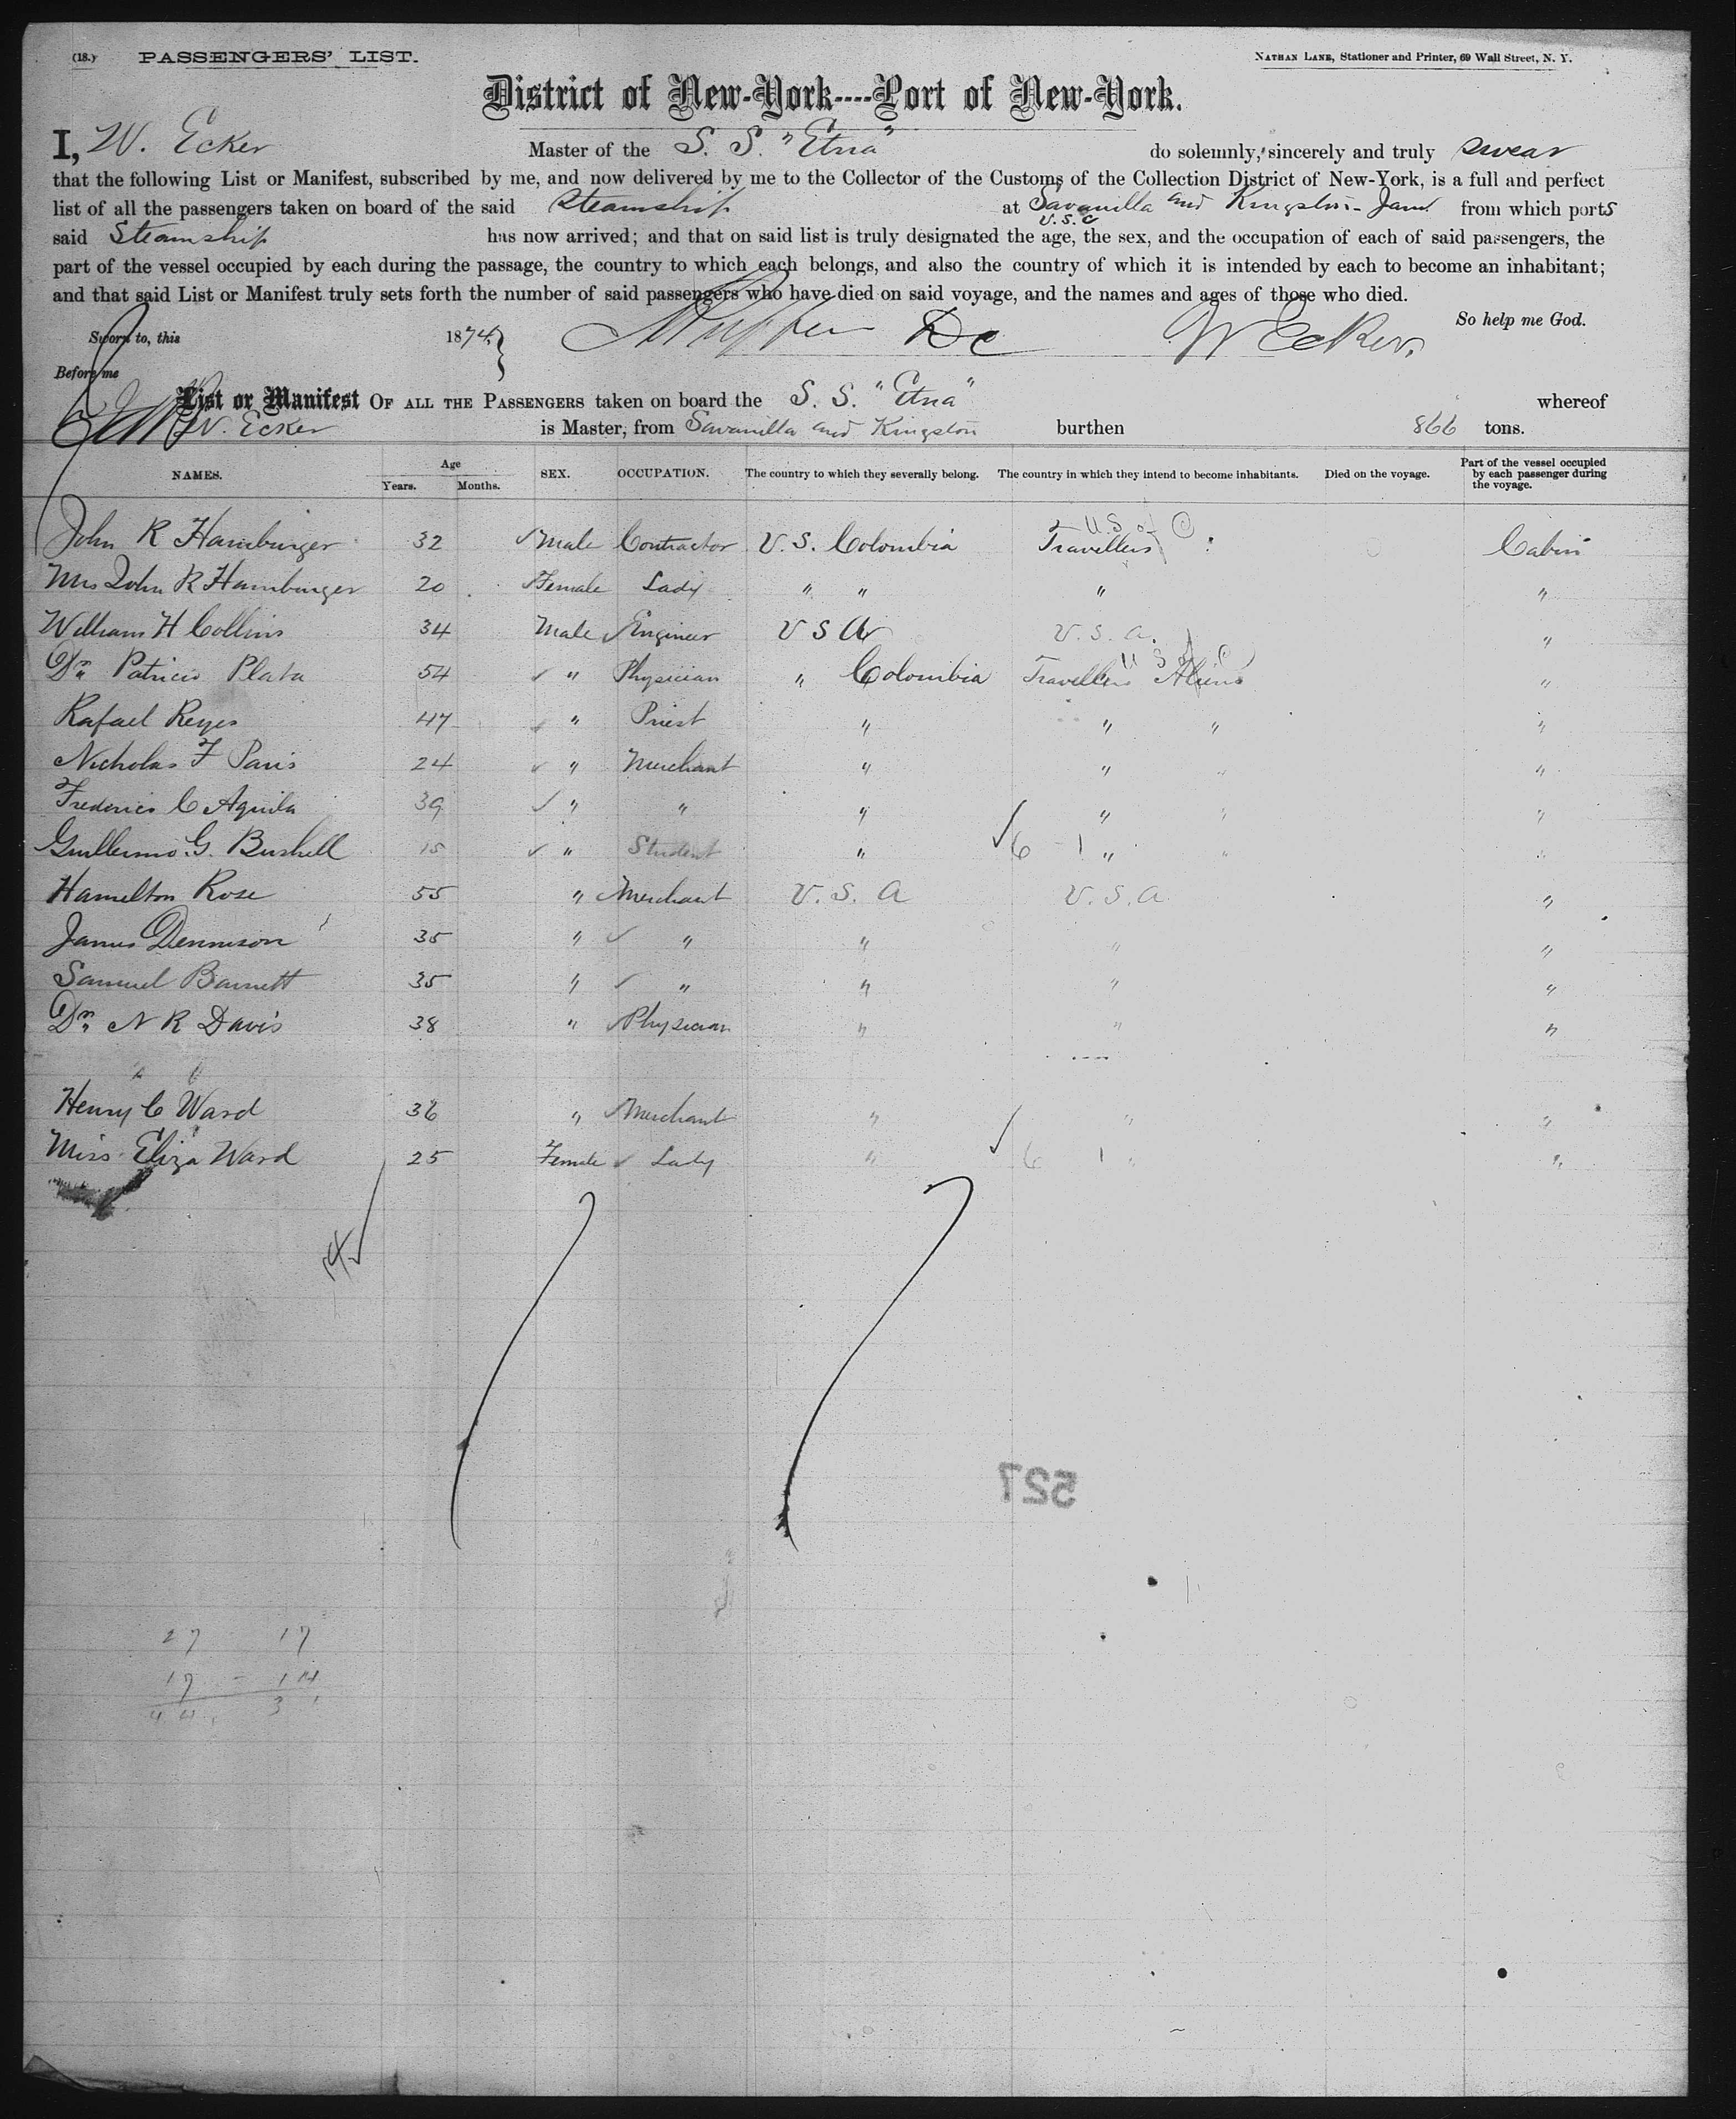 (18.) PASSENGERS' LIST. NATHAN LANE, Stationer and Printer, 69 Wall Street, N. Y.
District of New-York----Port of New-York.
I, W. Ecker Master of the S. S. "Etna" do solemnly, sincerely and truly swear
that the following List or Manifest, subscribed by me, and now delivered by me to the Collector of the Customs of the Collection District of New-York, is a full and perfect
list of all the passengers taken on board of the said Steamship at Savanilla and Kingston-Jam from which ports
U.S.C
said Steamship has now arrived; and that on said list is truly designated the age, the sex, and the occupation of each of said passengers, the
part of the vessel occupied by each during the passage, the country to which each belongs, and also the country of which it is intended by each to become an inhabitant;
and that said List or Manifest truly sets forth the number of said passengers who have died on said voyage, and the names and ages of those who died.
So help me God.
Sworn to, this 1874 Dc W Ecker.
Before me
List or Manifest OF ALL THE PASSENGERS taken on board the S. S. "Etna" whereof
W. Ecker is Master, from Savanilla and Kingston burthen 866 tons.
NAMES. Age Years. Months. SEX. OCCUPATION. The country to which they severally belong. The country in which they intend to become inhabitants. Died on the voyage. Part of the vessel occupied by each passenger during the voyage.
U S of C
John R Hamburger 32 Male Contractor U. S. Colombia Travellers Cabin
Mrs John R Hamburger 20 Female Lady " " " "
William H Collins 34 Male Engineer U S A U. S. A. "
U S of C
Dr. Patricio Plata 54 " Physician " Colombia Travellers Aliens "
Rafael Reyes 47 " Priest " " " "
Nicholas F Paris 24 " Merchant " " " "
Frederico C Aquila 39 " " " " " "
Guillermo G. Bushell 15 " Student " 6 1 " " "
Hamelton Rose 55 " Merchant U. S. A U. S. A "
James Dennison 35 " " " " "
Samuel Barnett 35 " " " " "
Dr. N R Davis 38 " Physician " " "
Henry C Ward 36 " Merchant " " "
Miss Eliza Ward 25 Female Lady " 6 1 " "
14
527
27 17
17 - 14
44 3